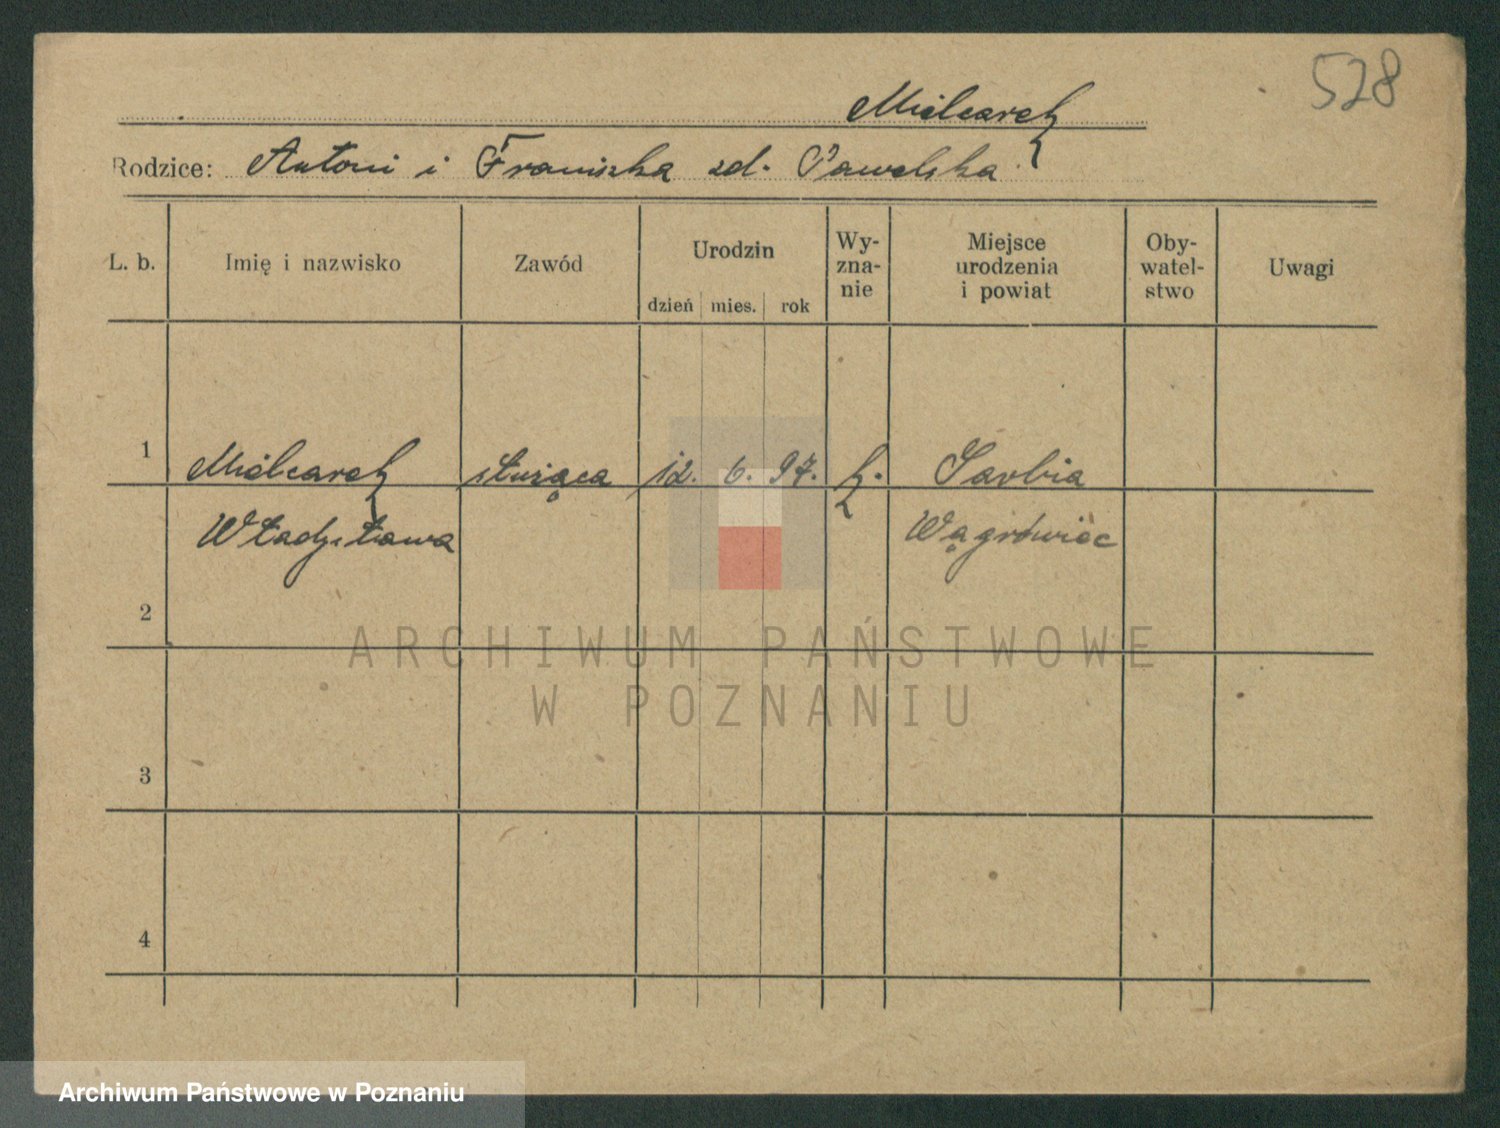 528
Mielcarek
Rodzice: Antoni i Franiszka zd. Pawelska
L. b. Imię i nazwisko Zawód Urodzin Wy-zna-nie Miejsce urodzenia i powiat Oby-watel-stwo Uwagi
dzień mies. rok
1 Mielcarek służąca 12. 6. 97. k. Sarbia
Władysława Wągrówiec
2
ARCHIWUM PAŃSTWOWE
W POZNANIU
3
4
Archiwum Państwowe w Poznaniu